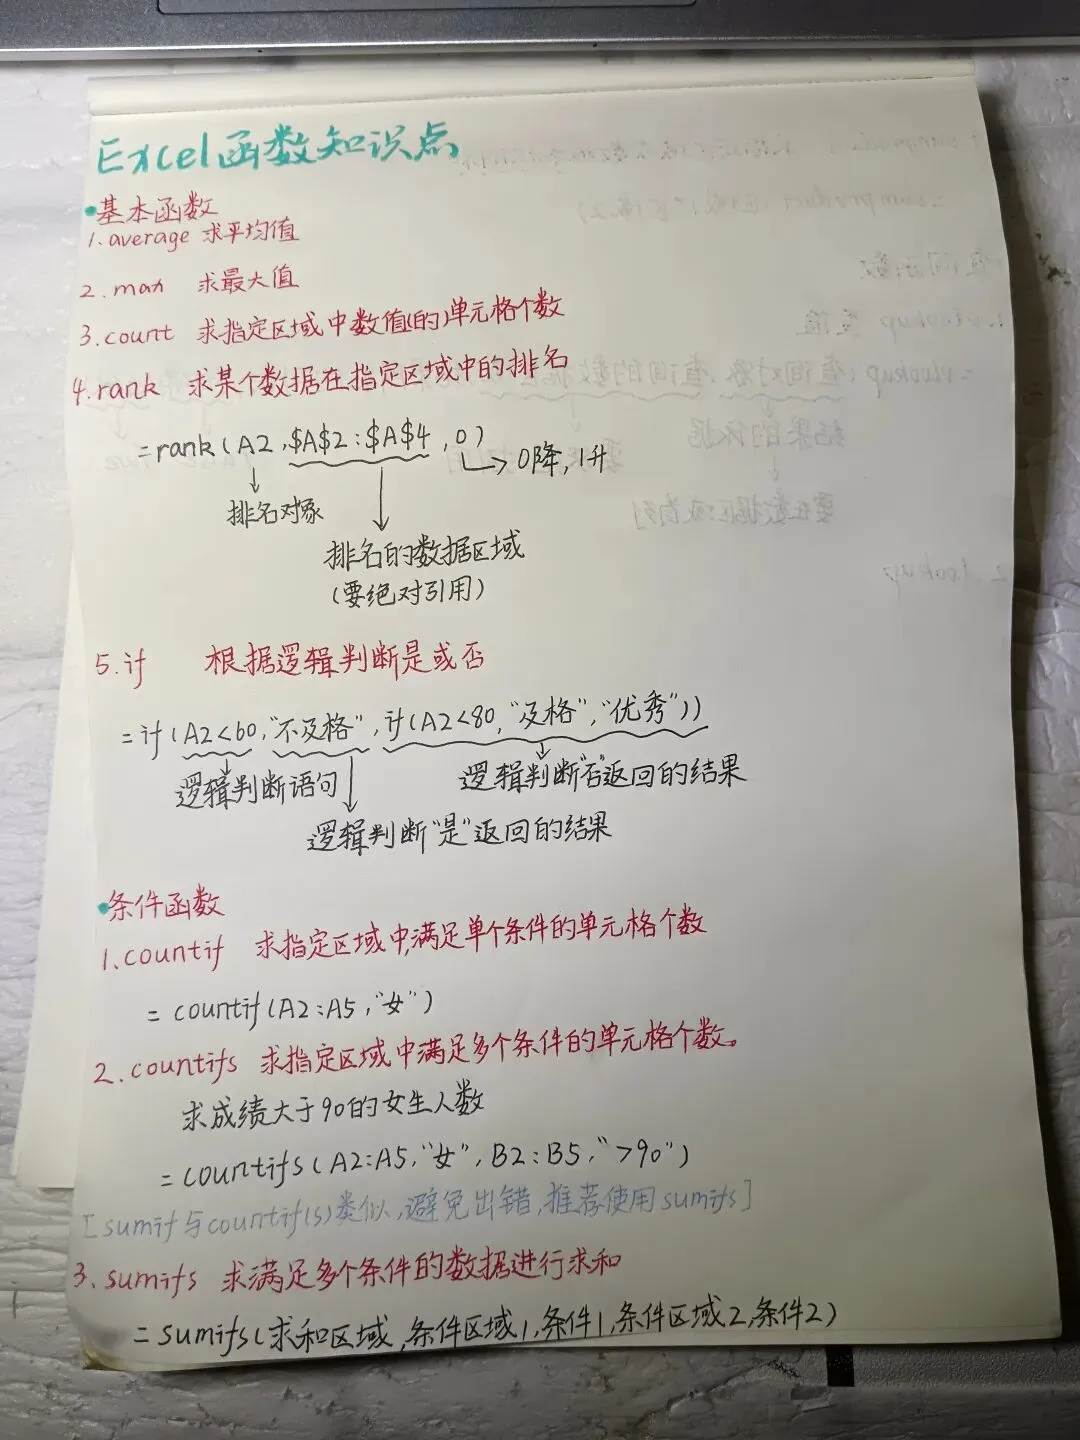 Excel函数知识点
•基本函数
1.average 求平均值
2.max 求最大值
3.count 求指定区域中数值(的)单元格个数
4.rank 求某个数据在指定区域中的排名
=rank(A2,$A$2:$A$4,0)
→0降,1升
排名对象
排名的数据区域
(要绝对引用)
5.if 根据逻辑判断是或否
=if(A2<60,"不及格",if(A2<80,"及格","优秀"))
逻辑判断语句
逻辑判断"否"返回的结果
逻辑判断"是"返回的结果
•条件函数
1.countif 求指定区域中,满足单个条件的单元格个数
=countif(A2:A5,"女")
2.countifs 求指定区域中满足多个条件的单元格个数。
求成绩大于90的女生人数
=countifs(A2:A5,"女",B2:B5,">90")
[sumif与countif(s)类似,避免出错,推荐使用sumifs]
3.sumifs 求满足多个条件的数据进行求和
=sumifs(求和区域,条件区域1,条件1,条件区域2,条件2)